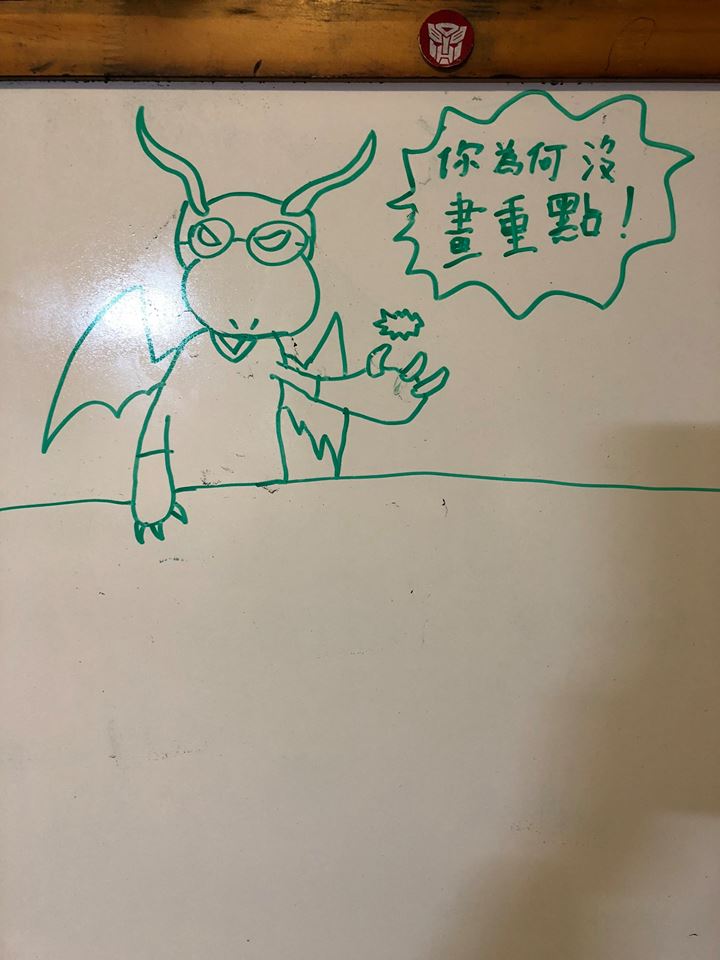 你為何沒
畫重點！